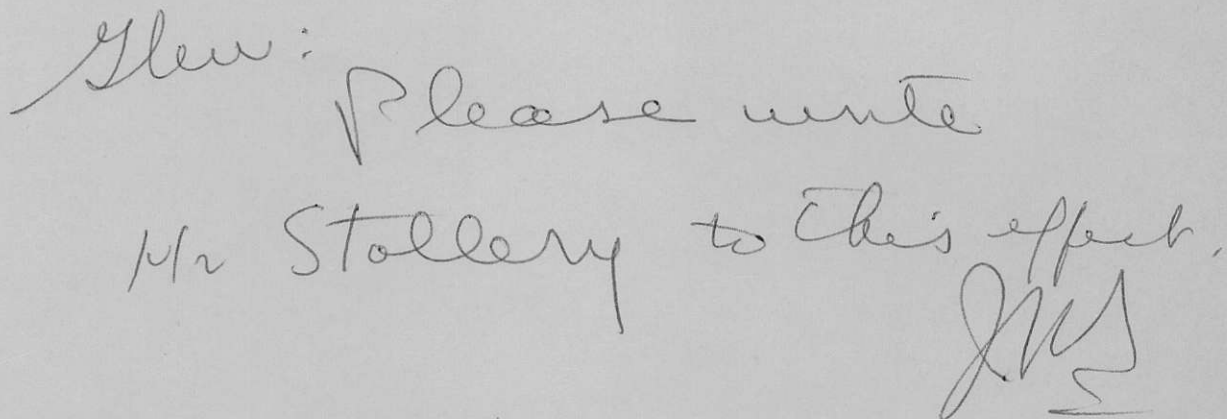 Glen:
Please write
Mr Stollery to this effect.